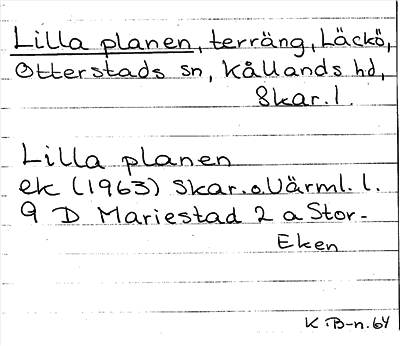 Lilla planen, terräng, Läckö,
Otterstads sn, Kållands hd,
Skar. l.
Lilla planen
ek (1963) Skar. o. Värml. l.
9 D Mariestad 2 a Stor-
Eken
K B-n. 64